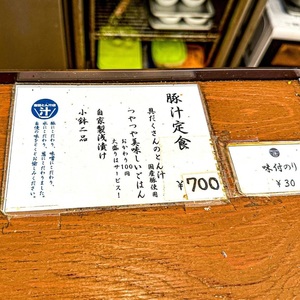 豚汁定食
具だくさんのとん汁
国産豚使用
つやつや美味しいごはん
おかわり100円
大盛りはサービス!
自家製浅漬け
小鉢二品
¥700
汁
味付のり
¥30